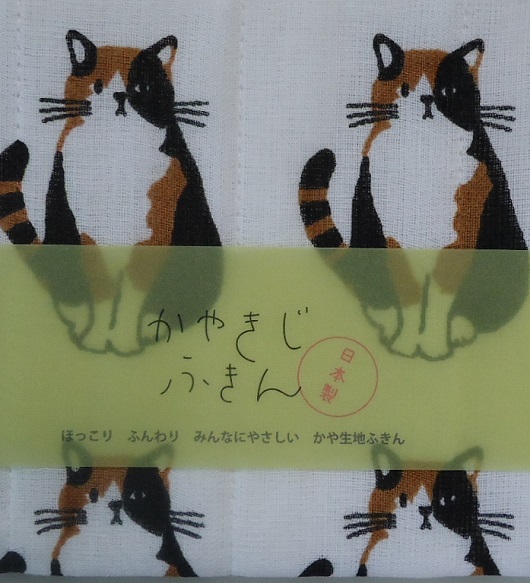 かやきじ
ふきん
日本製
ほっこり ふんわり みんなにやさしい かや生地ふきん